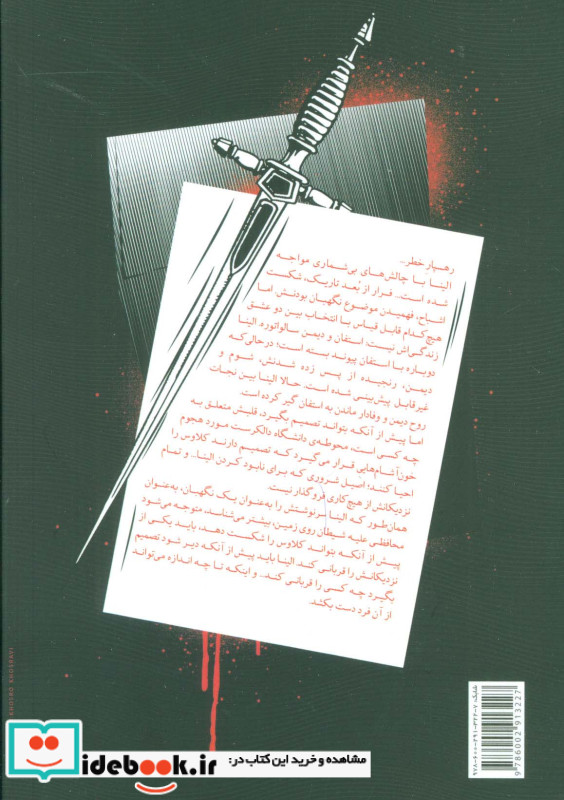 رهسپار خطر...
الینا با چالش‌های بی‌شماری مواجه
شده است. فرار از بُعد تاریک، شکست
اشباح، فهمیدن موضوع نگهبان بودنش. اما
هیچ‌کدام قابل قیاس با انتخاب بین دو عشق
زندگی‌اش نیست: استفان و دیمن سالواتوره. الینا
دوباره با استفان پیوند بسته است؛ درحالی‌که
دیمن، رنجیده از پس زده شدنش، شوم و
غیرقابل پیش‌بینی شده است. حالا الینا بین نجات
روح دیمن و وفادار ماندن به استفان گیر کرده است.
اما پیش از آنکه بتواند تصمیم بگیرد، قلبش متعلق به
چه کسی است، محوطه‌ی دانشگاه دالکرست مورد هجوم
خون‌آشام‌هایی قرار می‌گیرد که تصمیم دارند کلاوس را
احیا کنند؛ اصیل شروری که برای نابود کردن الینا... و تمام
نزدیکانش از هیچ‌کاری فروگذار نیست.
همان‌طور که الینا سرنوشتش را به‌عنوان یک نگهبان، به‌عنوان
محافظی علیه شیطان روی زمین، بیشتر می‌شناسد، متوجه می‌شود
پیش از آنکه بتواند کلاوس را شکست دهد، باید یکی از
نزدیکانش را قربانی کند. الینا باید پیش از آنکه دیر شود تصمیم
بگیرد چه کسی را قربانی کند... و اینکه تا چه اندازه می‌تواند
از آن فرد دست بکشد.
KHOSRO KHOSRAVI
شابک: ۷-۳۲۲-۲۹۱-۶۰۰-۹۷۸
9786002913227
مشاهده و خرید این کتاب در:
idebook.ir